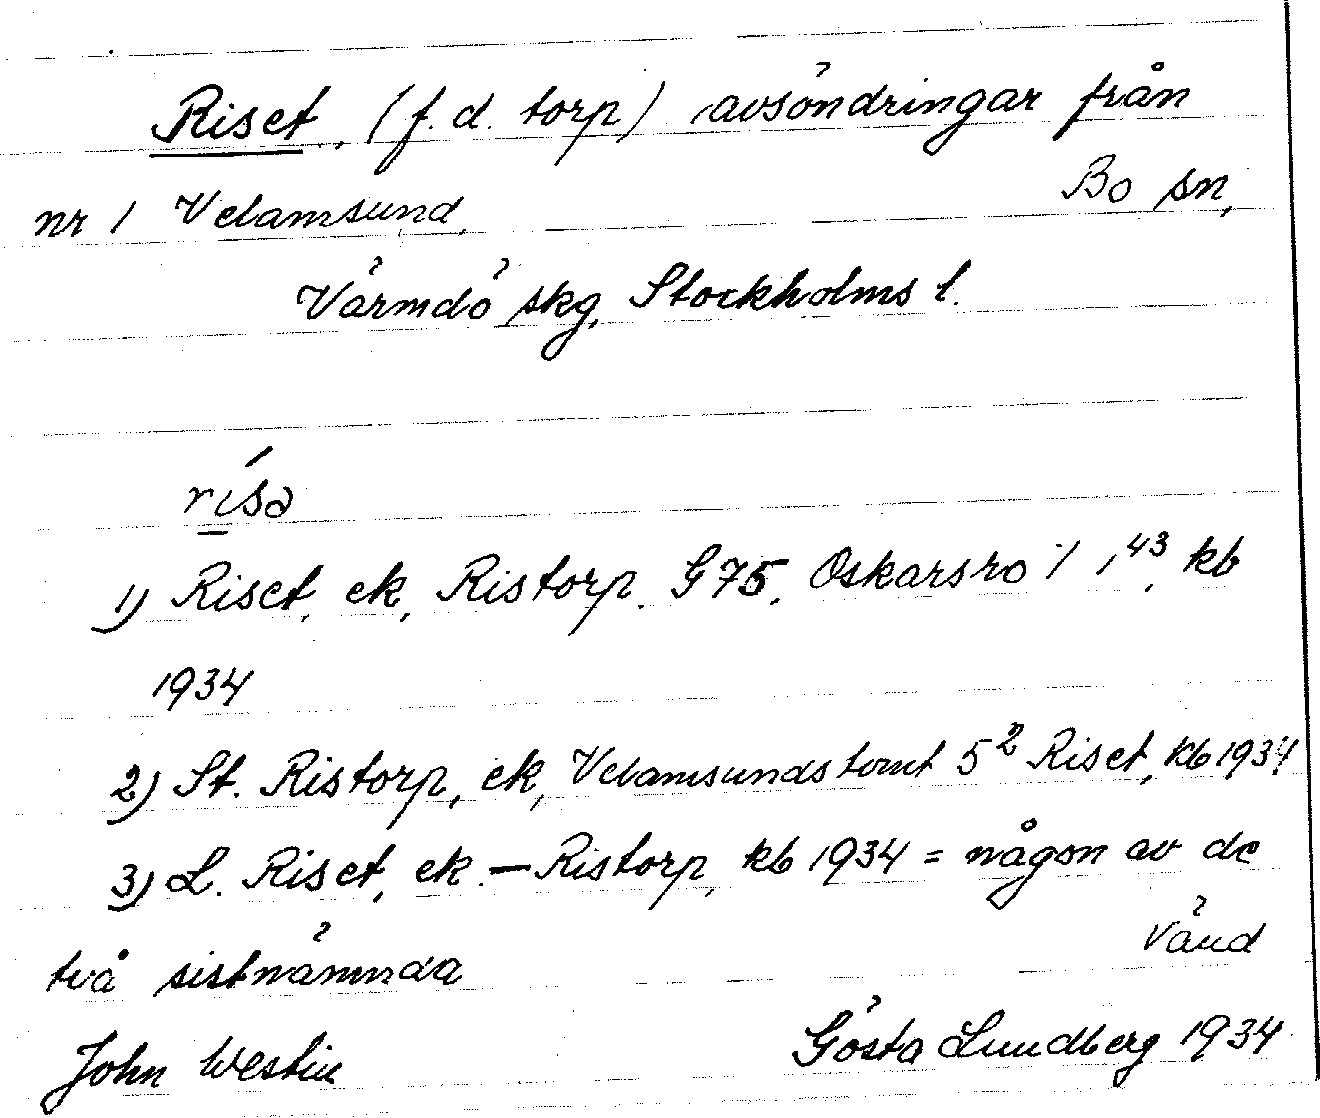 Riset, (f.d. torp) avsöndringar från
nr 1 Velamsund, Bo sn,
Värmdö skg, Stockholms l.
rísa
1) Riset, ek, Ristorp. G75, Oskarsro 1 1⁴³, kb
1934
2) St. Ristorp, ek, Velamsunds tomt 5² Riset, kb 1934
3) L. Riset, ek. — Ristorp, kb 1934 = någon av de
två sistnämnda Vänd
John Westin Gösta Lundberg 1934